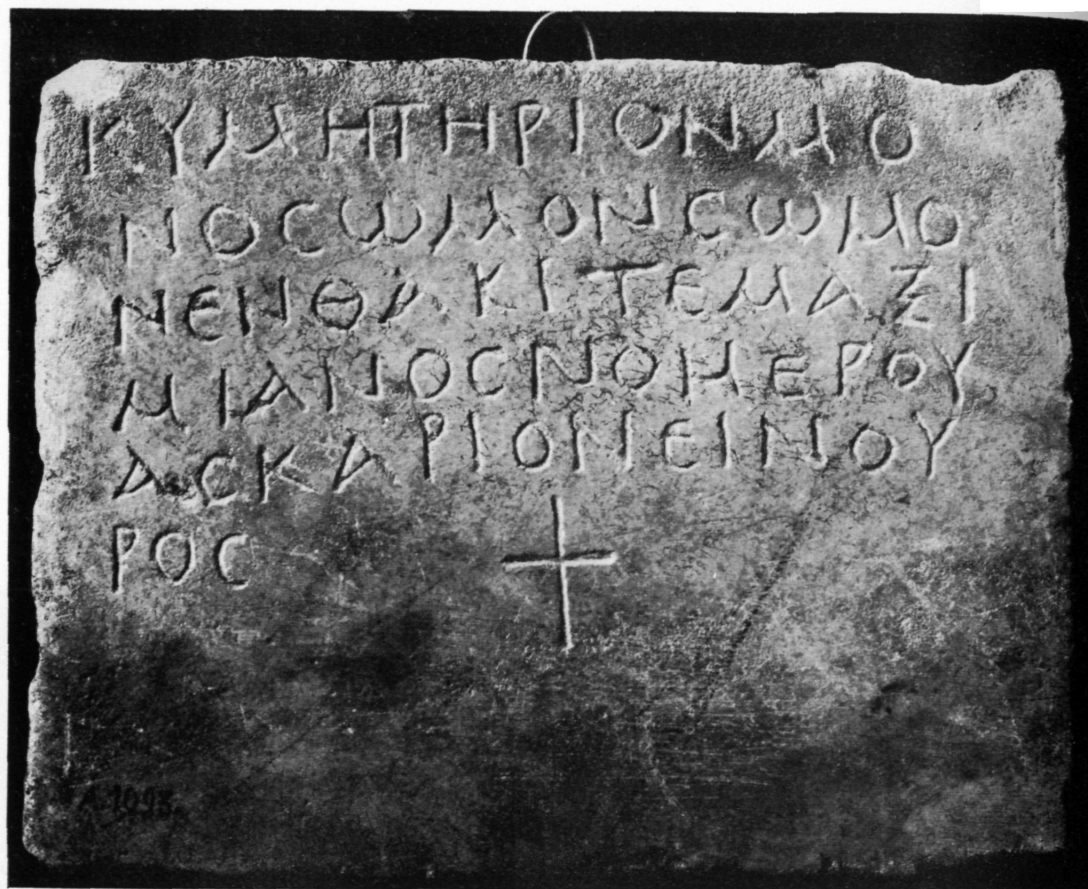 ΚΥΜΗΤΗΡΙΟΝΜΟ
ΝΟϹωΜΟΝϹωΜΟ
ΝΕΝΘΑΚΙΤΕΜΑΞΙ
ΜΙΑΝΟϹΝΟΜΕΡΟΥ
ΑϹΚΑΡΙΟΝΕΙΝΟΥ
ΡΟϹ